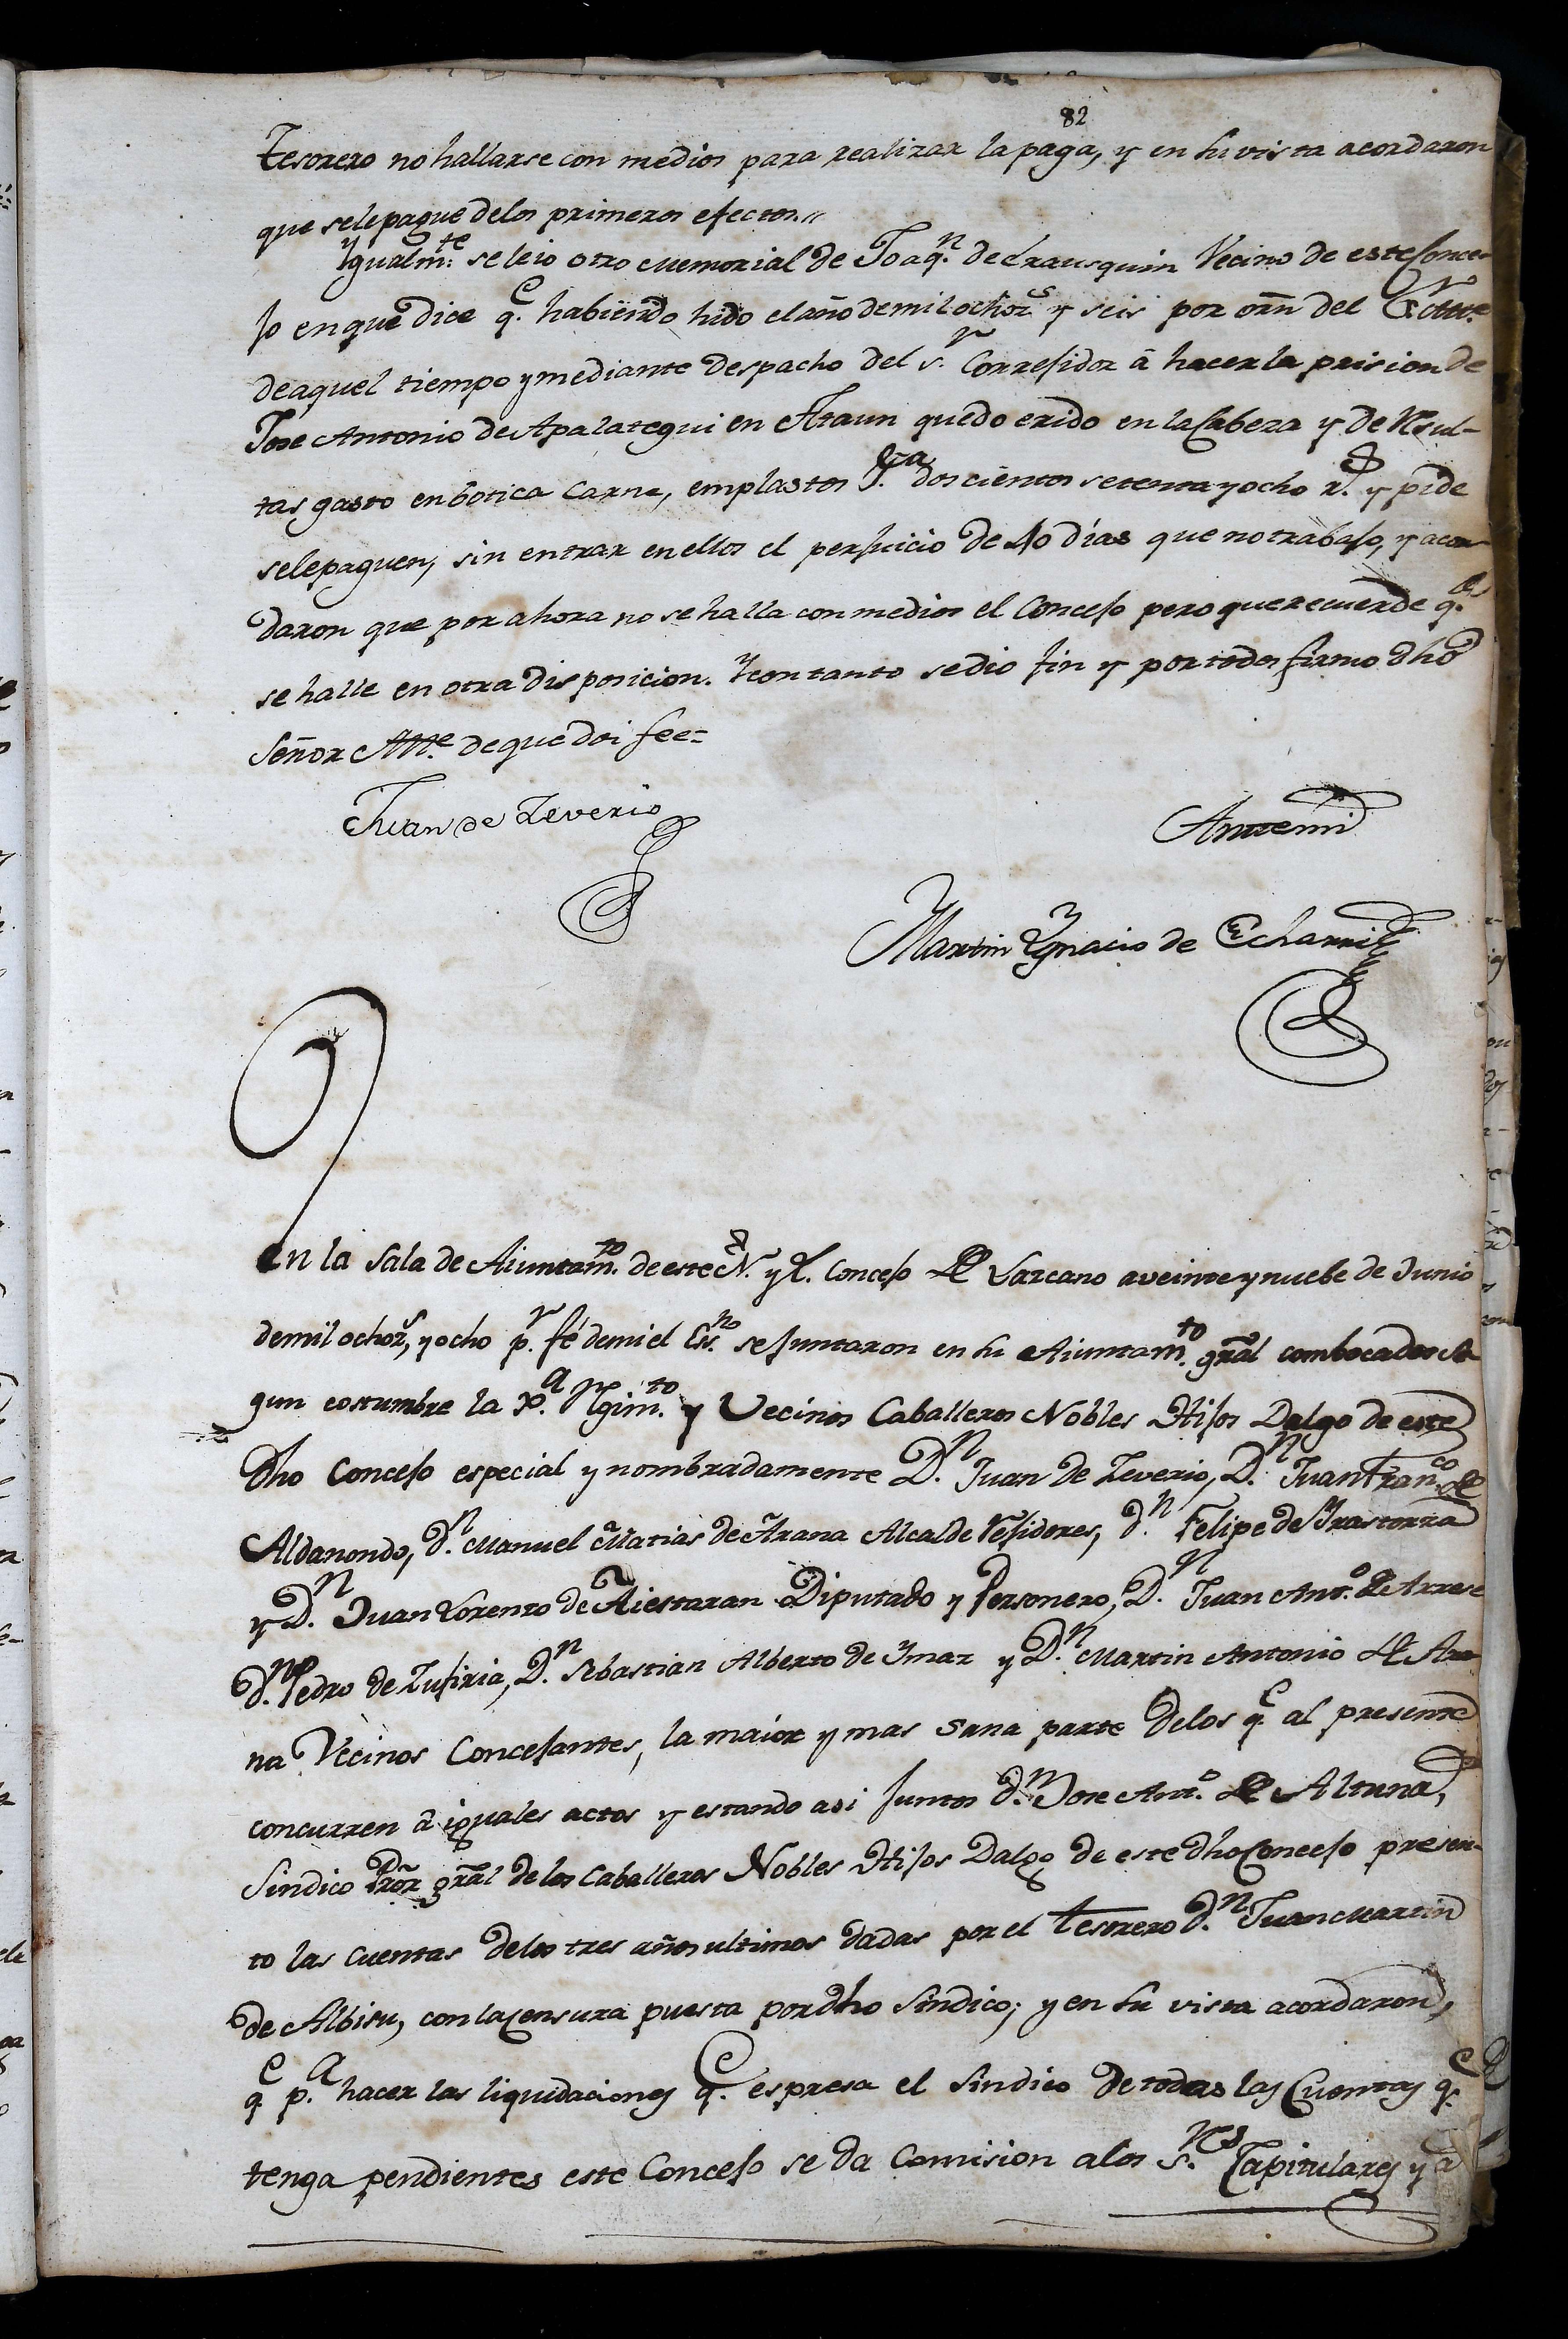 82
Tesorero no hallarse con medios para realizar la paga, y en su vista acordaron
que se le pague de los primeros efectos.//
Ygualm.te se leio otro memorial de Joaq.n de Lrausquin Vecino de este Conce-
jo en que dice q.e habiendo hido el año de mil ochoz.s y seis por orñ del
de aquel tiempo y mediante despacho del s.r Corregidor â hacer la prision de
Jose Antonio de Apalategui en Ataun quedo erido en la Cabeza y de Resul-
tas gasto en botica Carne, emplastos &.ra doscientos setenta y ocho r.s y pide
se le paguen, sin entrar en ellos el perjuicio de 40 días que no trabajo, y acor-
daron que por ahora no se halla con medios el Concejo pero que recuerde q.do
se halle en otra disposicion. Y con tanto se dio fin y por todos firmo dho
Señor Alle. de que doi fee=
Juan de Zeverio
Antemi
Martin Ygnacio de Echarri
En la Sala de Aiuntam.to de este N. y L. Concejo de Lazcano a veinte y nuebe de Junio
de mil ochoz.s y ocho p.r fé de mi el Ess.no se juntaron en su Aiuntam.to gral combocados se-
gun costumbre la x.a Rgim.to y Vecinos Caballeros Nobles Hijos Dalgo de este
dho Concejo especial y nombradamente D.n Juan de Zeverio, D.n Juan Fran.co de
Aldanondo, d.n Manuel Matias de Arana Alcalde Rejidores, d.n Felipe de Yrastorza
y D.n Juan Lorenzo de Aiestaran Diputado y Personero, D.n Juan Ant.o de Arrese
d.n Pedro de Zufiria, D.n Sebastian Alberto de Ymaz y D.n Martin Antonio de Ara-
na Vecinos Concejantes, la maior y mas sana parte de los q.e al presente
concurren â iguales actos y estando asi juntos d.n Jose Ant.o de Altuna,
Sindico Pror gral de los Caballeros Nobles Hijos Dalgo de este dho Concejo presen-
to las cuentas de los tres años ultimos dadas por el tesorero d.n Juan Martin
de Albisu, con la Censura puesta por dho Sindico; y en su vista acordaron,
q.e p.a hacer las liquidaciones q.e espresa el Sindico de todas las Cuentas q.e
tenga pendientes este Concejo se da Comision a los S.res Capitulares y a